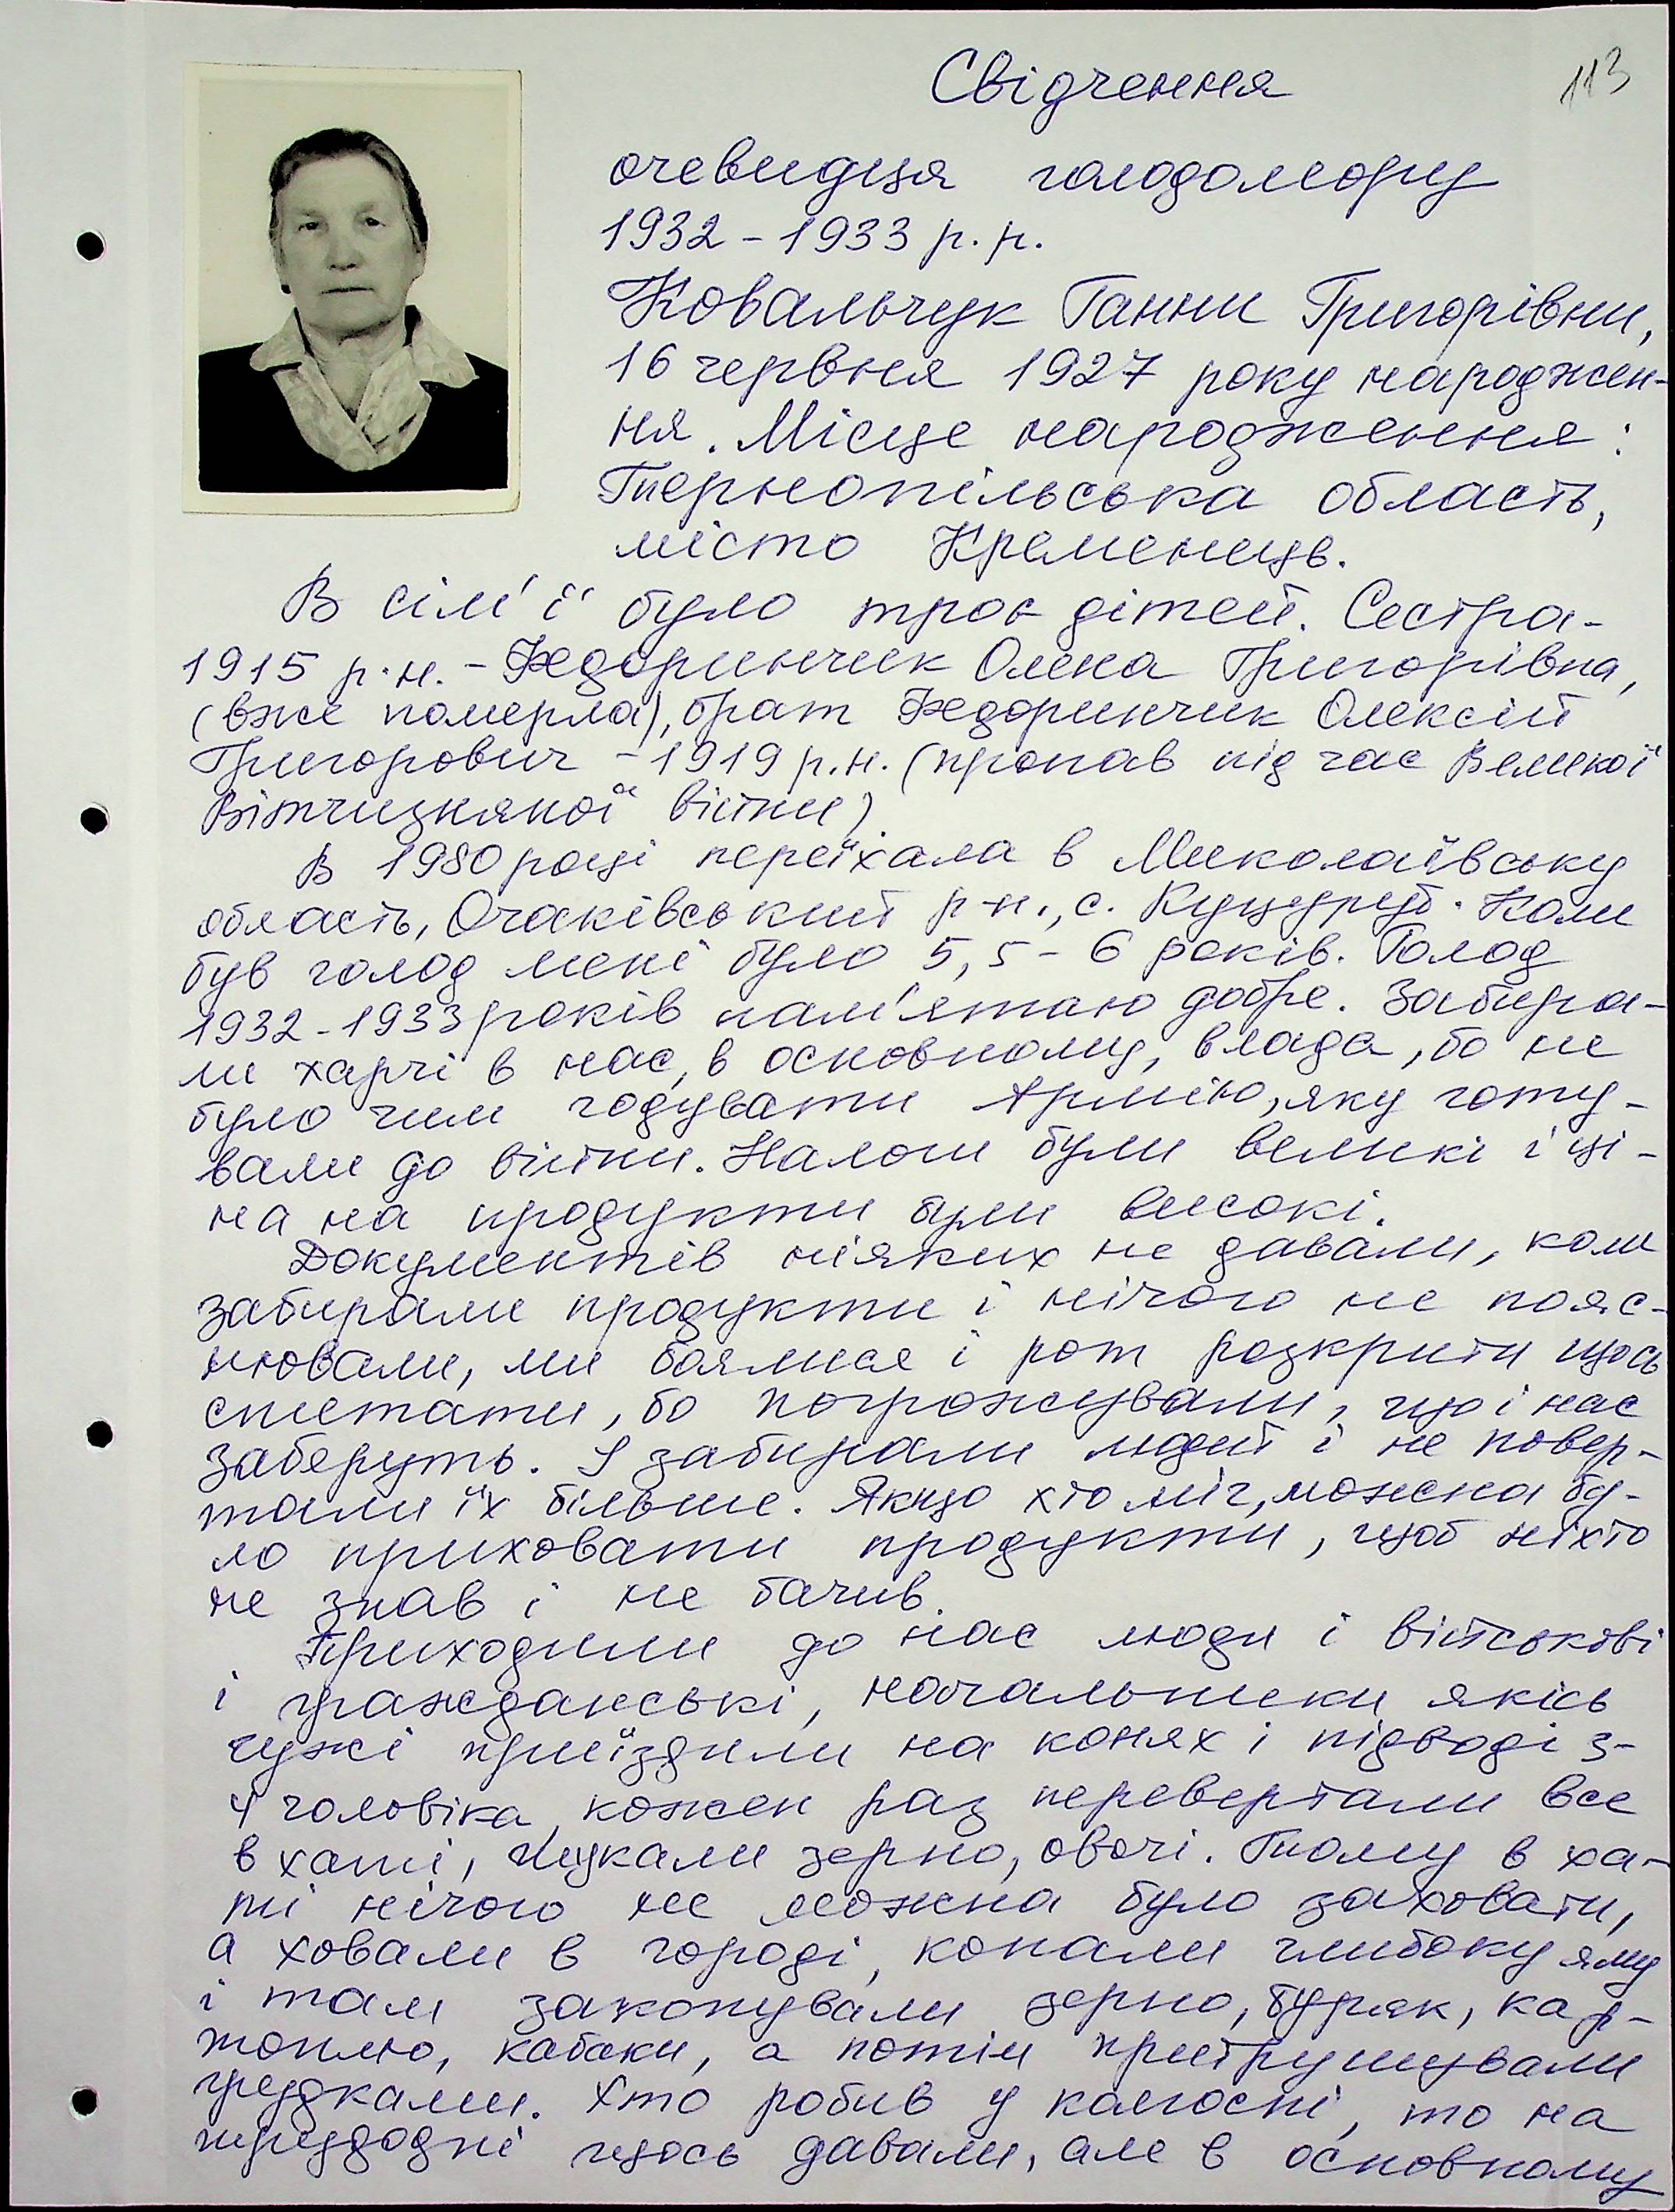 113
Свідчення
очевидця голодомору
1932 - 1933 р. р.
Ковальчук Ганни Григорівни,
16 червня 1927 року народжен-
ня. Місце народження:
Тернопільська область,
місто Кременець.
В сім'ї було троє дітей. Сестра-
1915 р.н. - Федоринчик Олена Григорівна,
(вже померла), брат Федоринчик Олексій
Григорович - 1919 р.н. (пропав під час Великої
Вітчизняної війни)
В 1980 році переїхала в Миколаївську
область, Очаківський р-н., с. Куцуруб. Коли
був голод мені було 5,5 - 6 років. Голод
1932 - 1933 років пам'ятаю добре. Забира-
ли харчі в нас, в основному, влада, бо не
було чим годувати Армію, яку готу-
вали до війни. Налоги були великі і ці-
на на продукти були високі.
Документів ніяких не давали, коли
забирали продукти і нічого не пояс-
нювали, ми боялися і рот розкрити щось
спитати, бо погрожували, що і нас
заберуть. І забирали людей і не повер-
тали їх більше. Якщо хто міг, можна бу-
ло приховати продукти, щоб ніхто
не знав і не бачив.
Приходили до нас люди і військові
і гражданські, начальники якісь
чужі приїздили на конях і підводі 3-
4 чоловіка, кожен раз перевертали все
в хаті, шукали зерно, овочі. Тому в ха-
ті нічого не можна було заховати,
а ховали в городі, копали глибоку яму
і там закопували зерно, буряк, кар-
топлю, кабаки, а потім притрушували
грудками. Хто робив у колгоспі, то на
трудодні щось давали, але в основному